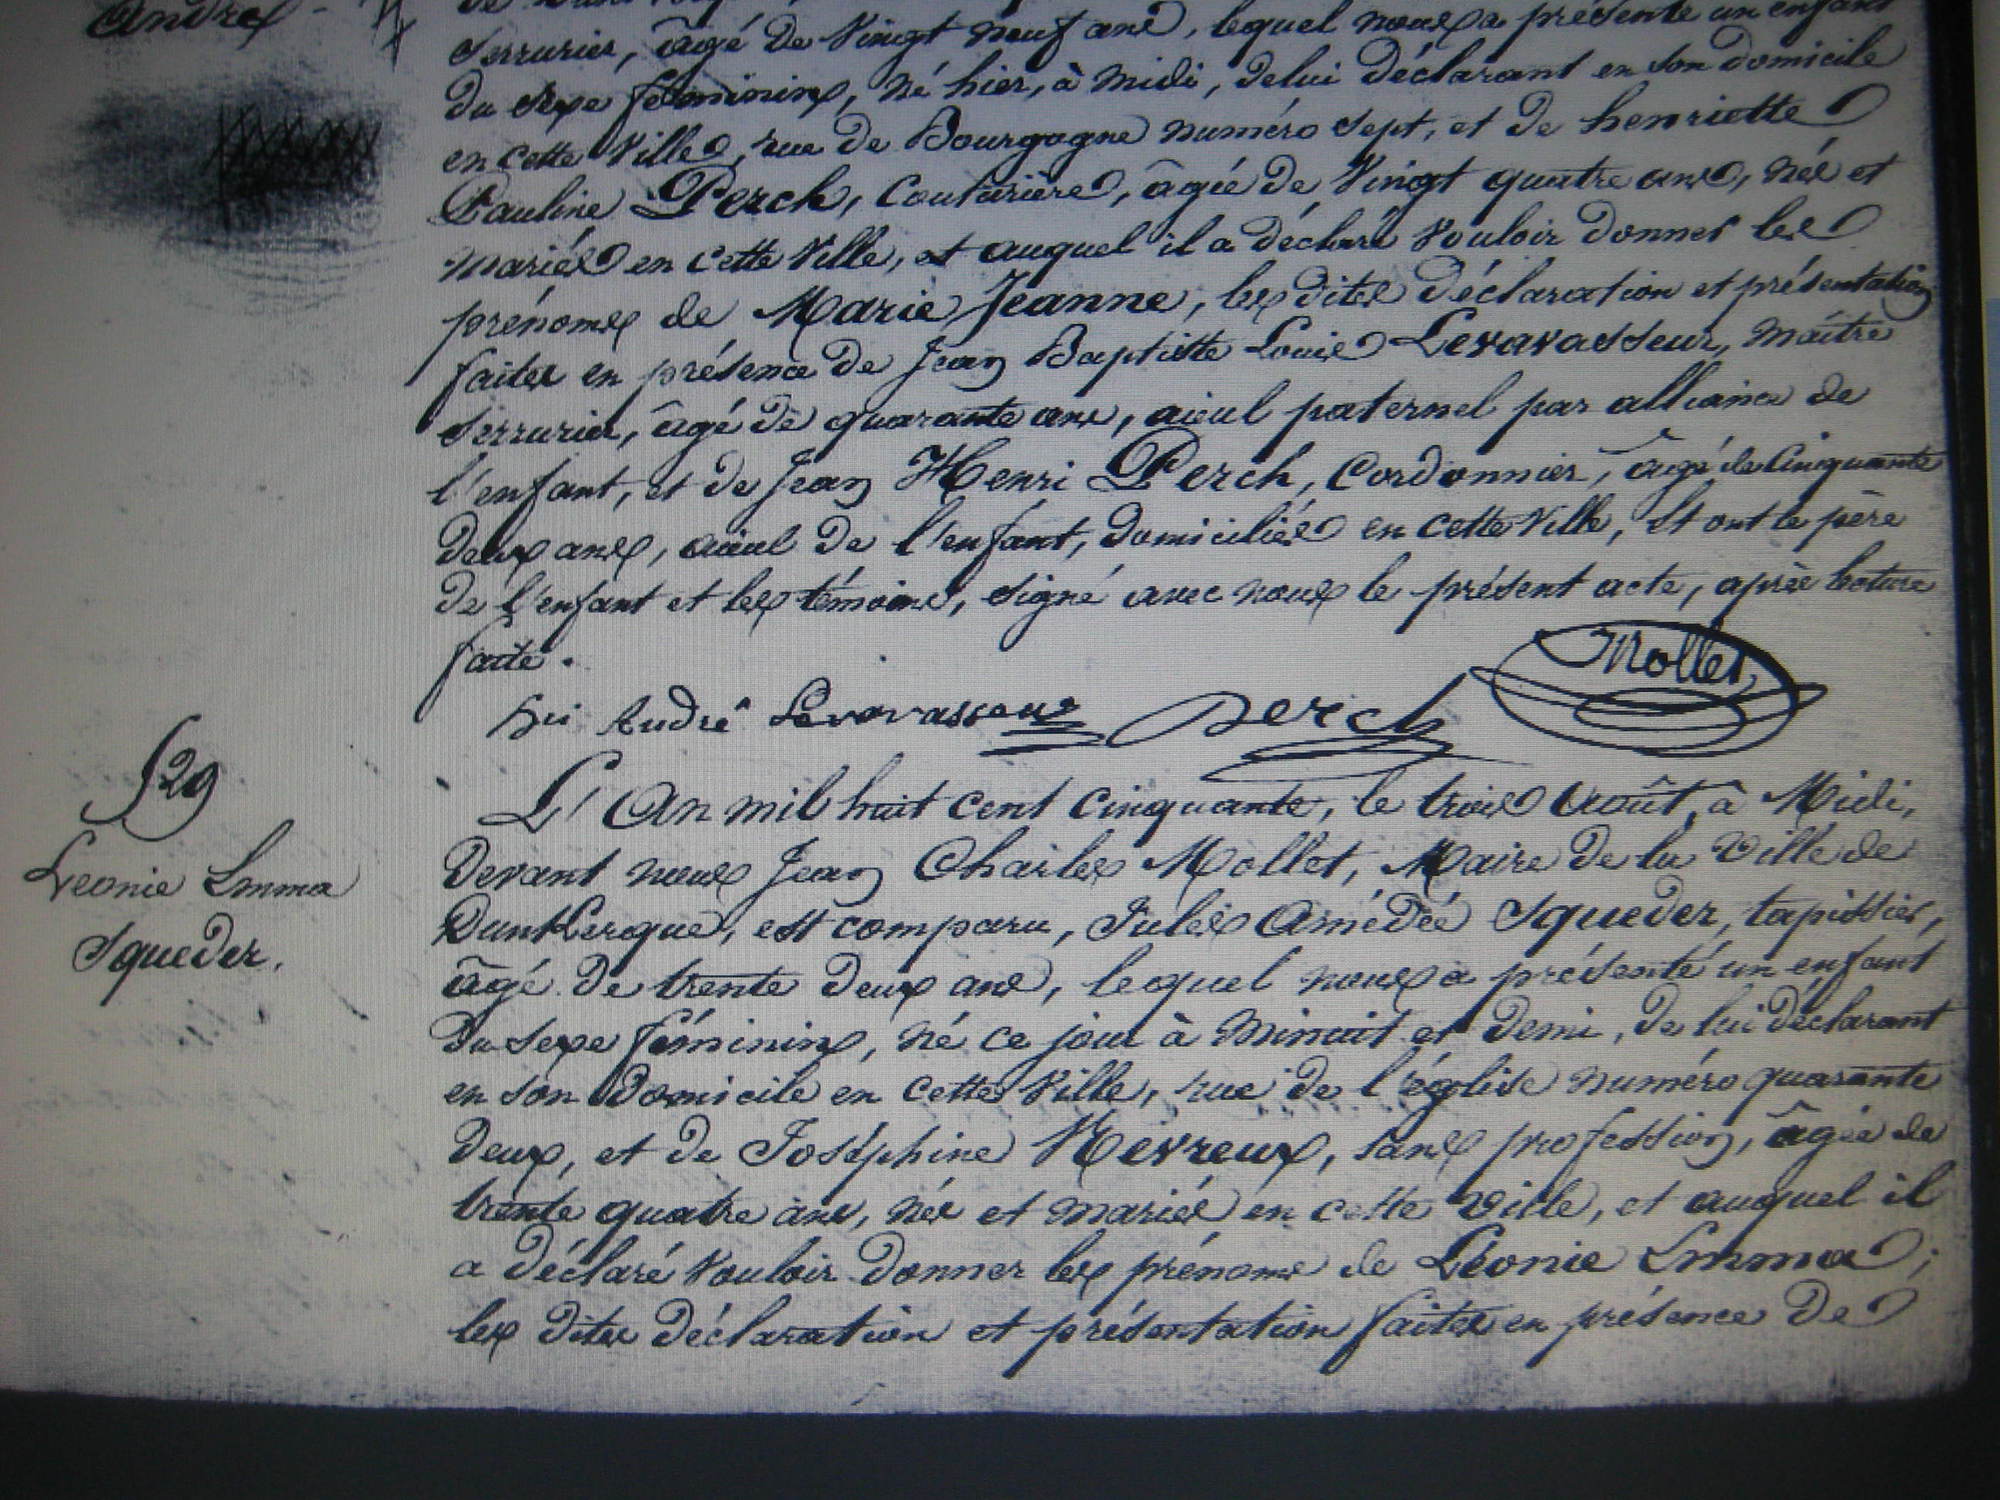 André
Serrurier, âgé de Vingt neuf ans, lequel nous a présenté un enfant
du sexe féminin, né hier, à midi, de lui déclarant en son domicile
en cette Ville, rue de Bourgogne numéro sept, et de henriette
Pauline Perch, Couturière, âgée de Vingt quatre ans, née et
mariée en cette Ville, et auquel il a déclaré Vouloir donner les
prénoms de Marie Jeanne, les dites déclaration et présentation
faites en présence de Jean Baptiste Louis Levavasseur, maître
Serrurier, âgé de quarante ans, aïeul paternel par alliance de
l'enfant, et de Jean Henri Perch, Cordonnier, âgé de Cinquante
deux ans, aïeul de l'enfant, domiciliés en cette Ville, Et ont le père
de l'enfant et les témoins, signé avec nous le présent acte, après lecture
faite.
André Levavasseur Perch Mollet
529
Léonie Emma
Squeder.
L'An mil huit cent cinquante, le trois Août, à Midi,
Devant nous Jean Charles Mollet, Maire de la Ville de
Dunkerque, est comparu, Jules Amédée Squeder, tapissier,
âgé de trente deux ans, lequel nous a présenté un enfant
du sexe féminin, né ce jour à Minuit et demi, de lui déclarant
en son Domicile en cette Ville, rue de l'église numéro quarante
deux, et de Joséphine Revreux, sans profession, âgée de
trente quatre ans, née et mariée en cette Ville, et auquel il
a déclaré Vouloir donner les prénoms de Léonie Emma;
les dites déclaration et présentation faites en présence de